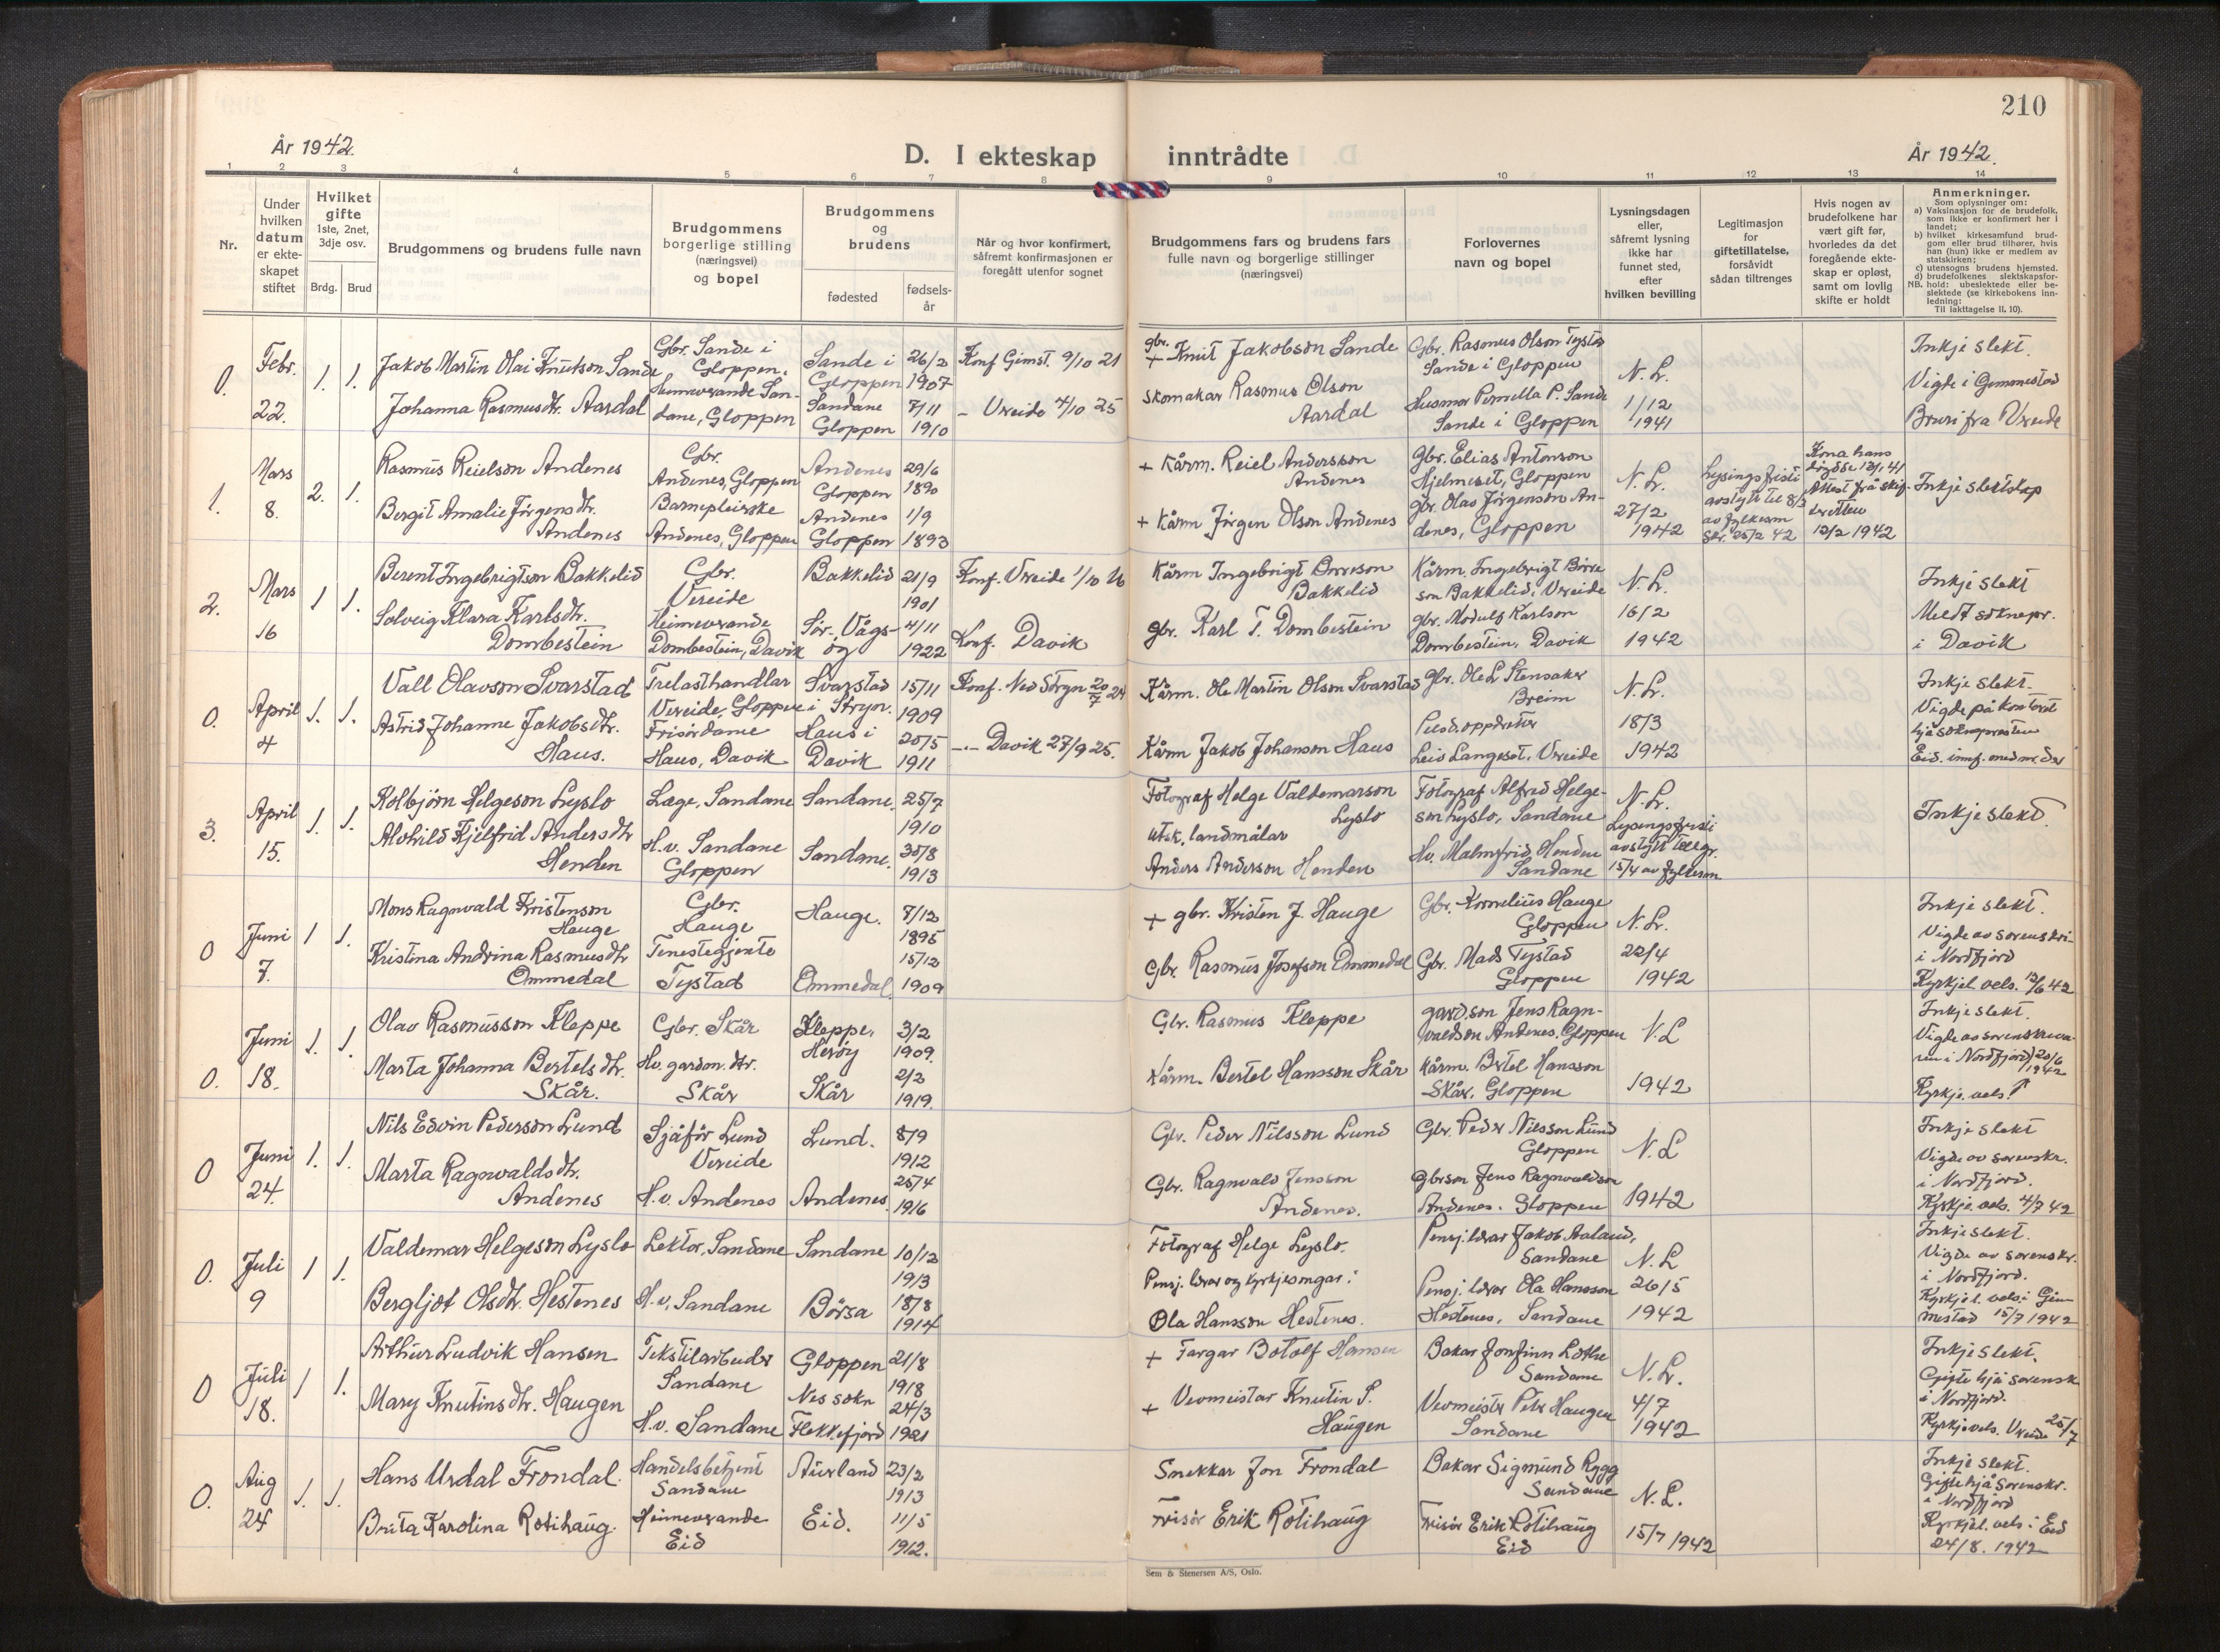 210
År 1942.
D. I ekteskap inntrådte
År 1942.
1 2 3 4 5 6 7 8 9 10 11 12 13 14
Nr.
Under
hvilken
datum
er ekte-
skapet
stiftet
Hvilket
gifte
1ste, 2net,
3dje osv.
Brdg. Brud
Brudgommens og brudens fulle navn
Brudgommens
borgerlige stilling
(næringsvei)
og bopel
Brudgommens
og
brudens
fødested
fødsels-
år
Når og hvor konfirmert,
såfremt konfirmasjonen er
foregått utenfor sognet
Brudgommens fars og brudens fars
fulle navn og borgerlige stillinger
(næringsvei)
Forlovernes
navn og bopel
Lysningsdagen
eller,
såfremt lysning
ikke har
funnet sted,
efter
hvilken bevilling
Legitimasjon
for
giftetillatelse,
forsåvidt
sådan tiltrenges
Hvis nogen av
brudefolkene har
vært gift før,
hvorledes da det
foregående ekte-
skap er opløst,
samt om lovlig
skifte er holdt
Anmerkninger.
Som oplysninger om:
a) Vaksinasjon for de brudefolk,
som ikke er konfirmert her i
landet;
b) hvilket kirkesamfund brud-
gom eller brud tilhører, hvis
han (hun) ikke er medlem av
statskirken;
c) utensogns brudens hjemsted.
d) brudefolkenes slektskapsfor-
NB. hold: ubeslektede eller be-
slektede (se kirkebokens inn-
ledning:
Til iakttagelse II, 10).
0.
Febr.
22.
1. 1.
Jakob Martin Olai Knutson Sande
Johanna Rasmusdtr. Aardal
Gbr. Sande i
Gloppen.
Heimeverande San-
dane, Gloppen
Sande i
Gloppen
Sandane
Gloppen
26/2
1907
7/11
1910
Konf Gimst. 9/10 21
- Vereide 4/10 25
gbr.
+ Knut Jakobson Sande
Skomakar Rasmus Olson
Aardal
Gbr. Rasmus Olson Tystad
Sande i Gloppen
Husmor Pernella P. Sande
Sande i Gloppen
N. L.
1/12
1941
Inkje slekt.
Vigde i Gimmestad
Bruri fra Vereide
1.
Mars
8.
2. 1.
Rasmus Reielson Andenes
Bergit Amalie Jörgensdtr.
Andenes
Gbr.
Andenes, Gloppen
Barnepleierske
Andenes, Gloppen
Andenes
Gloppen
Andenes
Gloppen
29/6
1890
1/9
1893
+ Kårm. Reiel Andersson
Andenes
+ Kårm Jörgen Olson Andenes
Gbr. Elias Antonson
Hjelmeset, Gloppen
gbr. Olav Jörgenson An-
denes, Gloppen
N. L.
27/2
1942
Lysingsfristi
avstytt til 8/3
av fylkesm
Skr. 25/2 42
Kona hans
döydde 12/1 41
Attest frå skif-
teretten
12/2 1942
Inkje slektskap
2.
Mars
16
1 1.
Berent Ingebrigtson Bakkelid
Solveig Klara Karlsdtr.
Dombestein
Gbr.
Vereide
Heimeverande
Dombestein, Davik
Bakkelid
Sör-Vågs-
öy
21/9
1901
4/11
1922
Konf. Vereide 1/10 16
Konf. Davik
Kårm Ingebrigt Börreson
Bakkelid
gbr. Karl T. Dombestein
Kårm. Ingebrigt Börre
son Bakkelid, Vereide
gbr. Modulf Karlson
Dombestein, Davik
N. L.
16/2
1942
Inkje slekt
Meldt soknepr.
i Davik
0.
April
4
1. 1.
Vall Olavson Svarstad
Astrid Johanne Jakobsdtr.
Haus.
Trelasthandlar
Vereide, Gloppen
Frisördame
Haus, Davik
Svarstad
i Stryn.
Haus i
Davik
15/11
1909
20/5
1911
Konf. Ned Stryn 20/7 24
-"- Davik 27/9 25.
Kårm. Ole Martin Olson Svarstad
Kårm Jakob Johanson Haus
Gbr. Ole L Stensaker
Breim
Pelsd.oppdretter
Leiv Langeset, Vereide
N. L.
18/3
1942
Inkje slekt.
Vigde på kontoret
hjå soknepresten
Eid. innf. med nr. der
3.
April
15.
1. 1.
Kolbjörn Helgeson Lyslo
Alvhild Kjelfrid Andersdtr
Henden
Læge, Sandane
H.v. Sandane
Gloppen
Sandane.
Sandane.
25/7
1910
30/8
1913
Fotograf Helge Valdemarson
Lyslo
utsk. landmålar
Anders Anderson Henden
Fotograf Alfred Helge-
son Lyslo, Sandane
Hv. Malmfrid Henden
Sandane
N. L.
Lysingsfristi
avstytt telegr.
15/4 av fylkesm
Inkje slekt.
0
Juni
7.
1 1.
Mons Ragnvald Kristenson
Hauge
Kristina Andrina Rasmusdtr
Ommedal
Gbr.
Hauge
Tenestegjente
Tystad
Hauge.
Ommedal.
7/12
1895
15/12
1909
+ gbr. Kristen J. Hauge
Gbr. Rasmus Josefson Ommedal
Gbr. Kornelius Hauge
Gloppen
Gbr. Mads Tystad
Gloppen
N. L.
22/4
1942
Inkje slekt.
Vigde av sorenskri-
i Nordfjord
Kyrkjel. vels. 13/6 42
0.
Juni
18.
1. 1.
Olav Rasmusson Kleppe
Marta Johanna Bertelsdtr.
Skår.
Gbr. Skår
Hv. gardm. dtr.
Skår
Kleppe,
Heröy
Skår
3/2
1909.
2/2
1919.
Gbr. Rasmus Kleppe
Kårm. Bertel Hansson Skår
gardson Jens Ragn-
valdson Andenes. Gloppen
Kårm. Bertel Hansson
Skår, Gloppen
N. L
1942
Inkje slekt.
Vigde av sorenskriva-
ren i Nordfjord 20/6
1942
Kyrkje. vels.
0
Juni
24.
1. 1.
Nils Edvin Pederson Lund
Marta Ragnvaldsdtr.
Andenes
Sjåför Lund
Vereide
H.v. Andenes
Lund.
Andenes.
8/9
1912
25/4
1916
Gbr. Peder Nilsson Lund
Gbr. Ragnvald Jensson
Andenes.
Gbr. Peder Nilsson Lund
Gloppen
Gbrson Jens Ragnvaldson
Andenes. Gloppen
N. L
1942
Inkje slekt
Vigde av sorenskr.
i Nordfjord.
Kyrkje. vels. 4/7 42
0.
Juli
9
1 1.
Valdemar Helgeson Lyslo
Bergljot Olsdtr. Hestenes
Lektor, Sandane
H.v, Sandane
Sandane
Börsa
10/12
1913
18/8
1914
Fotograf Helge Lyslo.
Pensj. lærar og kyrkjesongar:
Ola Hansson Hestenes.
Pensj. lærar Jakob Aaland,
Sandane
Pensj. lærar Ola Hansson
Hestenes, Sandane
N. L
26/5
1942
Inkje slekt.
Vigde av sorenskr.
i Nordfjord.
Kyrkjel. vels. i Gim-
mestad 15/7 1942
0
Juli
18.
1 1.
Arthur Ludvik Hansen
Mary Knutinsdtr. Haugen
Tekstilarbeider
Sandane
H.v. Sandane
Gloppen
Nes sokn
Flekkefjord
21/8
1918
24/3
1921
+ Fargar Botolf Hansen
+ Vevmeistar Knutin S.
Haugen
Bakar Jonfinn Lothe
Sandane
Vevmeister Peter Haugen
Sandane
N. L.
4/7
1942
Inkje slekt.
Gifte hjå sorensk
i Nordfjord.
Kyrkjevels. Vereide 25/7
0.
Aug
24
1. 1.
Hans Urdal Frondal.
Brita Karolina Rotihaug.
Handelsbetjent
Sandane
Heimeverande
Eid
Aurland
Eid.
23/2
1913
11/5
1912.
Snekkar Jon Frondal
Frisör Erik Rotihaug
Bakar Sigmund Rygg
Sandane
Frisör Erik Rotihaug
Eid
N. L.
15/7 1942
Inkje slekt.
Gifte hjå sorenskr.
i Nordfjord
Kyrkjel. vels. i Eid
24/8. 1942
Sem & Stenersen A/S, Oslo.